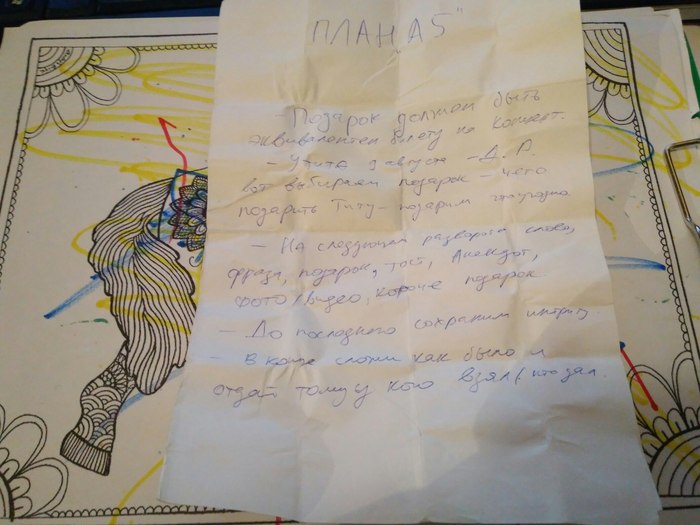 ПЛАН „А5"
- Подарок должен быть
эквивалентен билету на концерт.
- У Тита 9 августа - Д.Р.
вот выбираем подарок - чего
подарить Титу - подарим
- На следующем развороте слово,
фраза, подарок, тост, Анекдот,
фото/видео, короче подарок
- До последнего сохраним интригу
- В конце сложи как было и
отдай тому у кого взял/кто дал.